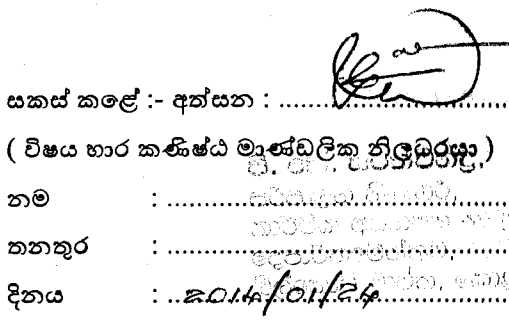 සකස් කළේ :- අත්සන : ........................
( විෂය භාර කණිෂ්ඨ මාණ්ඩලික නිලධරයා )
නම : ........................
තනතුර : ........................
දිනය : ..2014/01/24........................